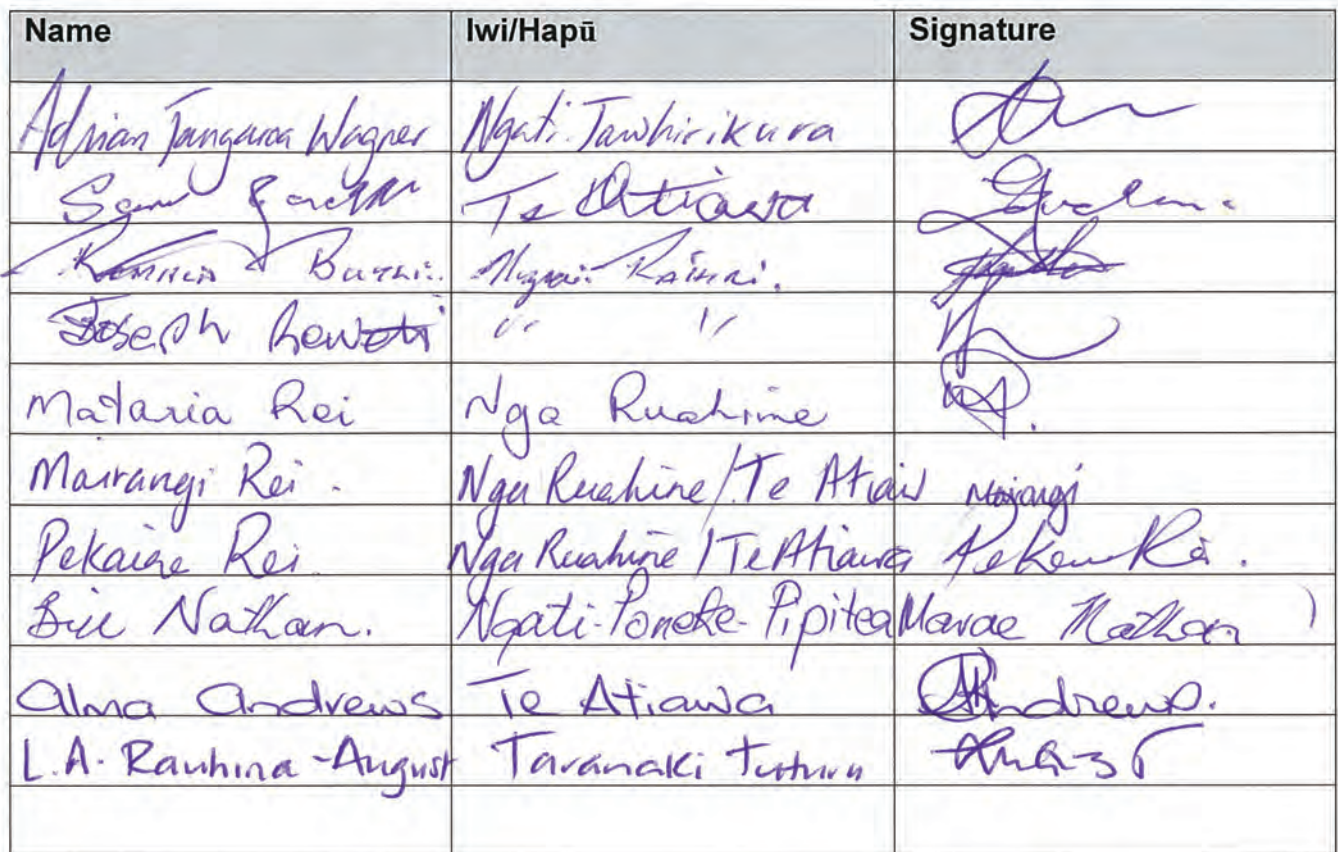 Name Iwi/Hapū Signature
Adrian Tangaroa Wagner Ngati Tawhirikura
Sam Te Atiawa
Joseph " "
Mataria Rei Nga Ruahine
Mairangi Rei. Nga Ruahine/Te Atiaw Mairangi
Pekaira Rei Nga Ruahine/Te Atiawa
Bill Nathan. Ngati-Poneke-Pipitea Marae Nathan
Alma Andrews Te Atiawa Andrews.
L.A. Rauhina-August Taranaki Tuturu